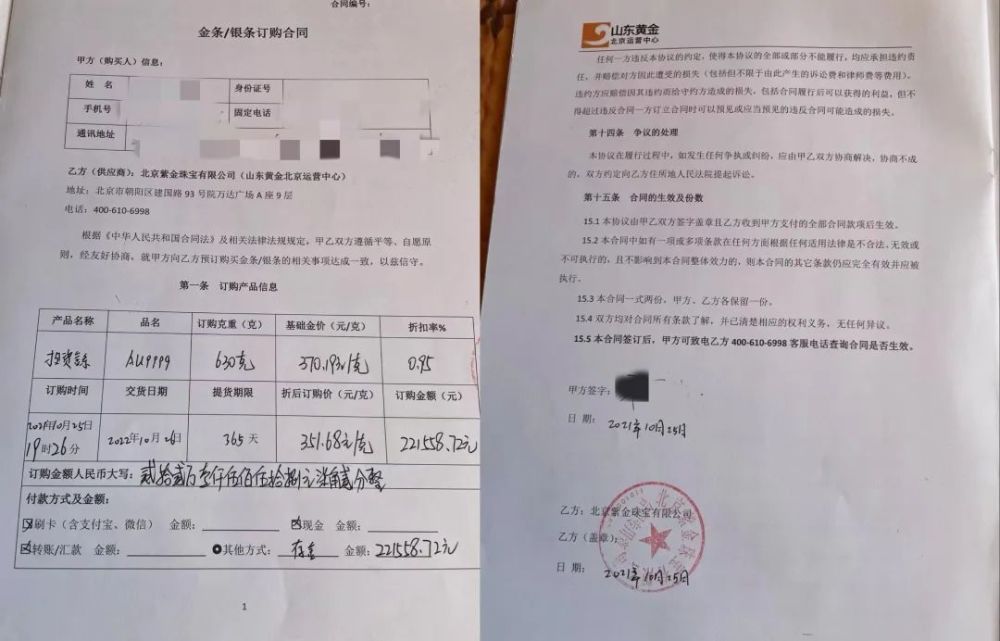 合同编号：
金条/银条订购合同
甲方（购买人）信息：
姓 名
身份证号
手机号
固定电话
通讯地址
乙方（供应商）：北京紫金珠宝有限公司（山东黄金北京运营中心）
地址：北京市朝阳区建国路 93 号院万达广场 A 座 9 层
电话：400-610-6998
根据《中华人民共和国合同法》及相关法律法规规定，甲乙双方遵循平等、自愿原
则，经友好协商，就甲方向乙方预订购买金条/银条的相关事项达成一致，以兹信守。
第一条 订购产品信息
产品名称 品名 订购克重（克） 基础金价（元/克） 折扣率%
投资金条 AU9999 630克 370.19元/克 0.95
订购时间 交货日期 提货期限 折后订购价（元/克） 订购金额（元）
2021年10月25日
19时26分 2022年10月26日 365天 351.68元/克 221558.72元
订购金额人民币大写：贰拾贰万壹仟伍佰伍拾捌元柒角贰分整
付款方式及金额：
刷卡（含支付宝、微信） 金额： 现金 金额：
转账/汇款 金额： 其他方式： 存金 金额：221558.72元
1
山东黄金
北京运营中心
任何一方违反本协议的约定，使得本协议的全部或部分不能履行，均应承担违约责
任，并赔偿对方因此遭受的损失（包括但不限于由此产生的诉讼费和律师费等费用）。
违约方应赔偿因其违约而给守约方造成的损失，包括合同履行后可以获得的利益，但不
得超过违反合同一方订立合同时可以预见或应当预见的违反合同可能造成的损失。
第十四条 争议的处理
本协议在履行过程中，如发生任何争执或纠纷，应由甲乙双方协商解决，协商不成
的，双方约定向乙方住所地人民法院提起诉讼。
第十五条 合同的生效及份数
15.1 本协议由甲乙双方签字盖章且乙方收到甲方支付的全部合同款项后生效。
15.2 本合同中如有一项或多项条款在任何方面根据任何适用法律是不合法、无效或
不可执行的，且不影响到本合同整体效力的，则本合同的其它条款仍应完全有效并应被
执行。
15.3 本合同一式两份，甲方、乙方各保留一份。
15.4 双方均对合同所有条款了解，并已清楚相应的权利义务，无任何异议。
15.5 本合同签订后，甲方可致电乙方 400-610-6998 客服电话查询合同是否生效。
甲方签字：
日 期： 2021年10月25日
乙方：北京紫金珠宝有限公司
乙方（盖章）：
日 期： 2021年10月25日